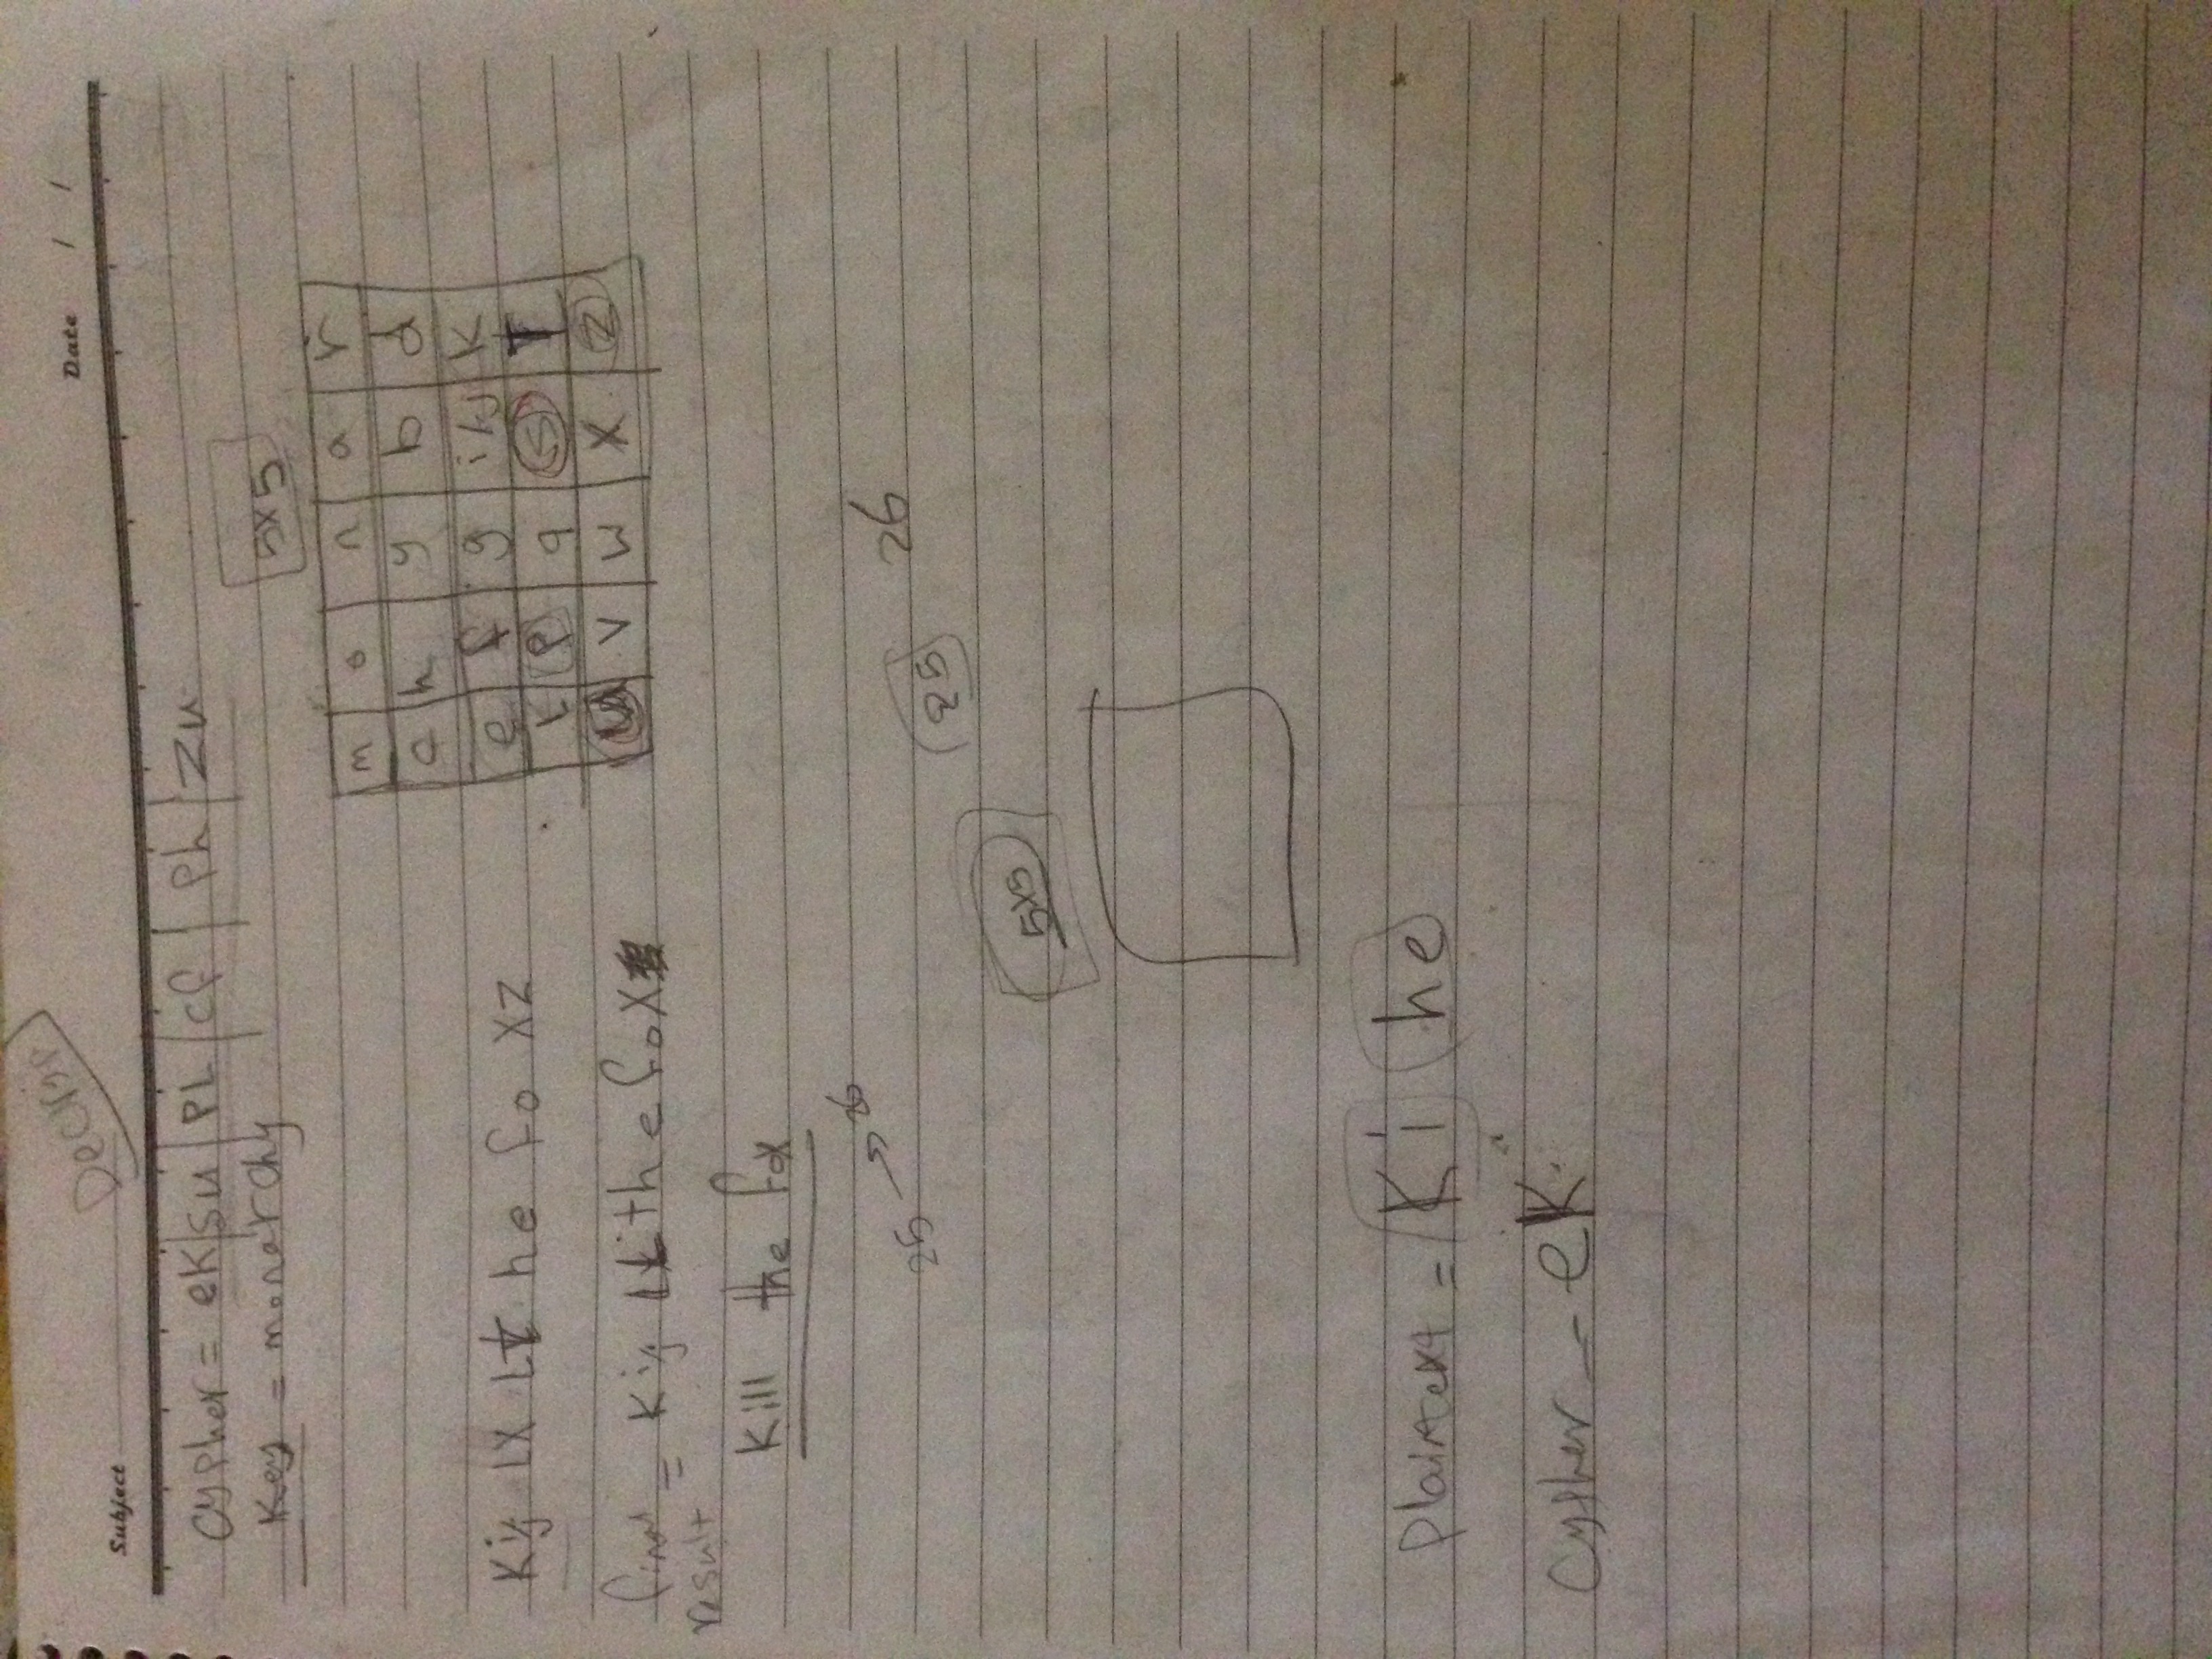 Decryp
Date / /
Subject
Cypher = ek|su|PL|cf|Ph|Zu
Key = monarchy
5x5
m o n a r
c h y b d
e f g i/j K
L P q S T
U V W X Z
Ki/j LX Lt he fo XZ
final result = Ki/j the fox
Kill the fox
25 → 26
25 26
5x5
Plaintext = Ki he
Cypher = eK